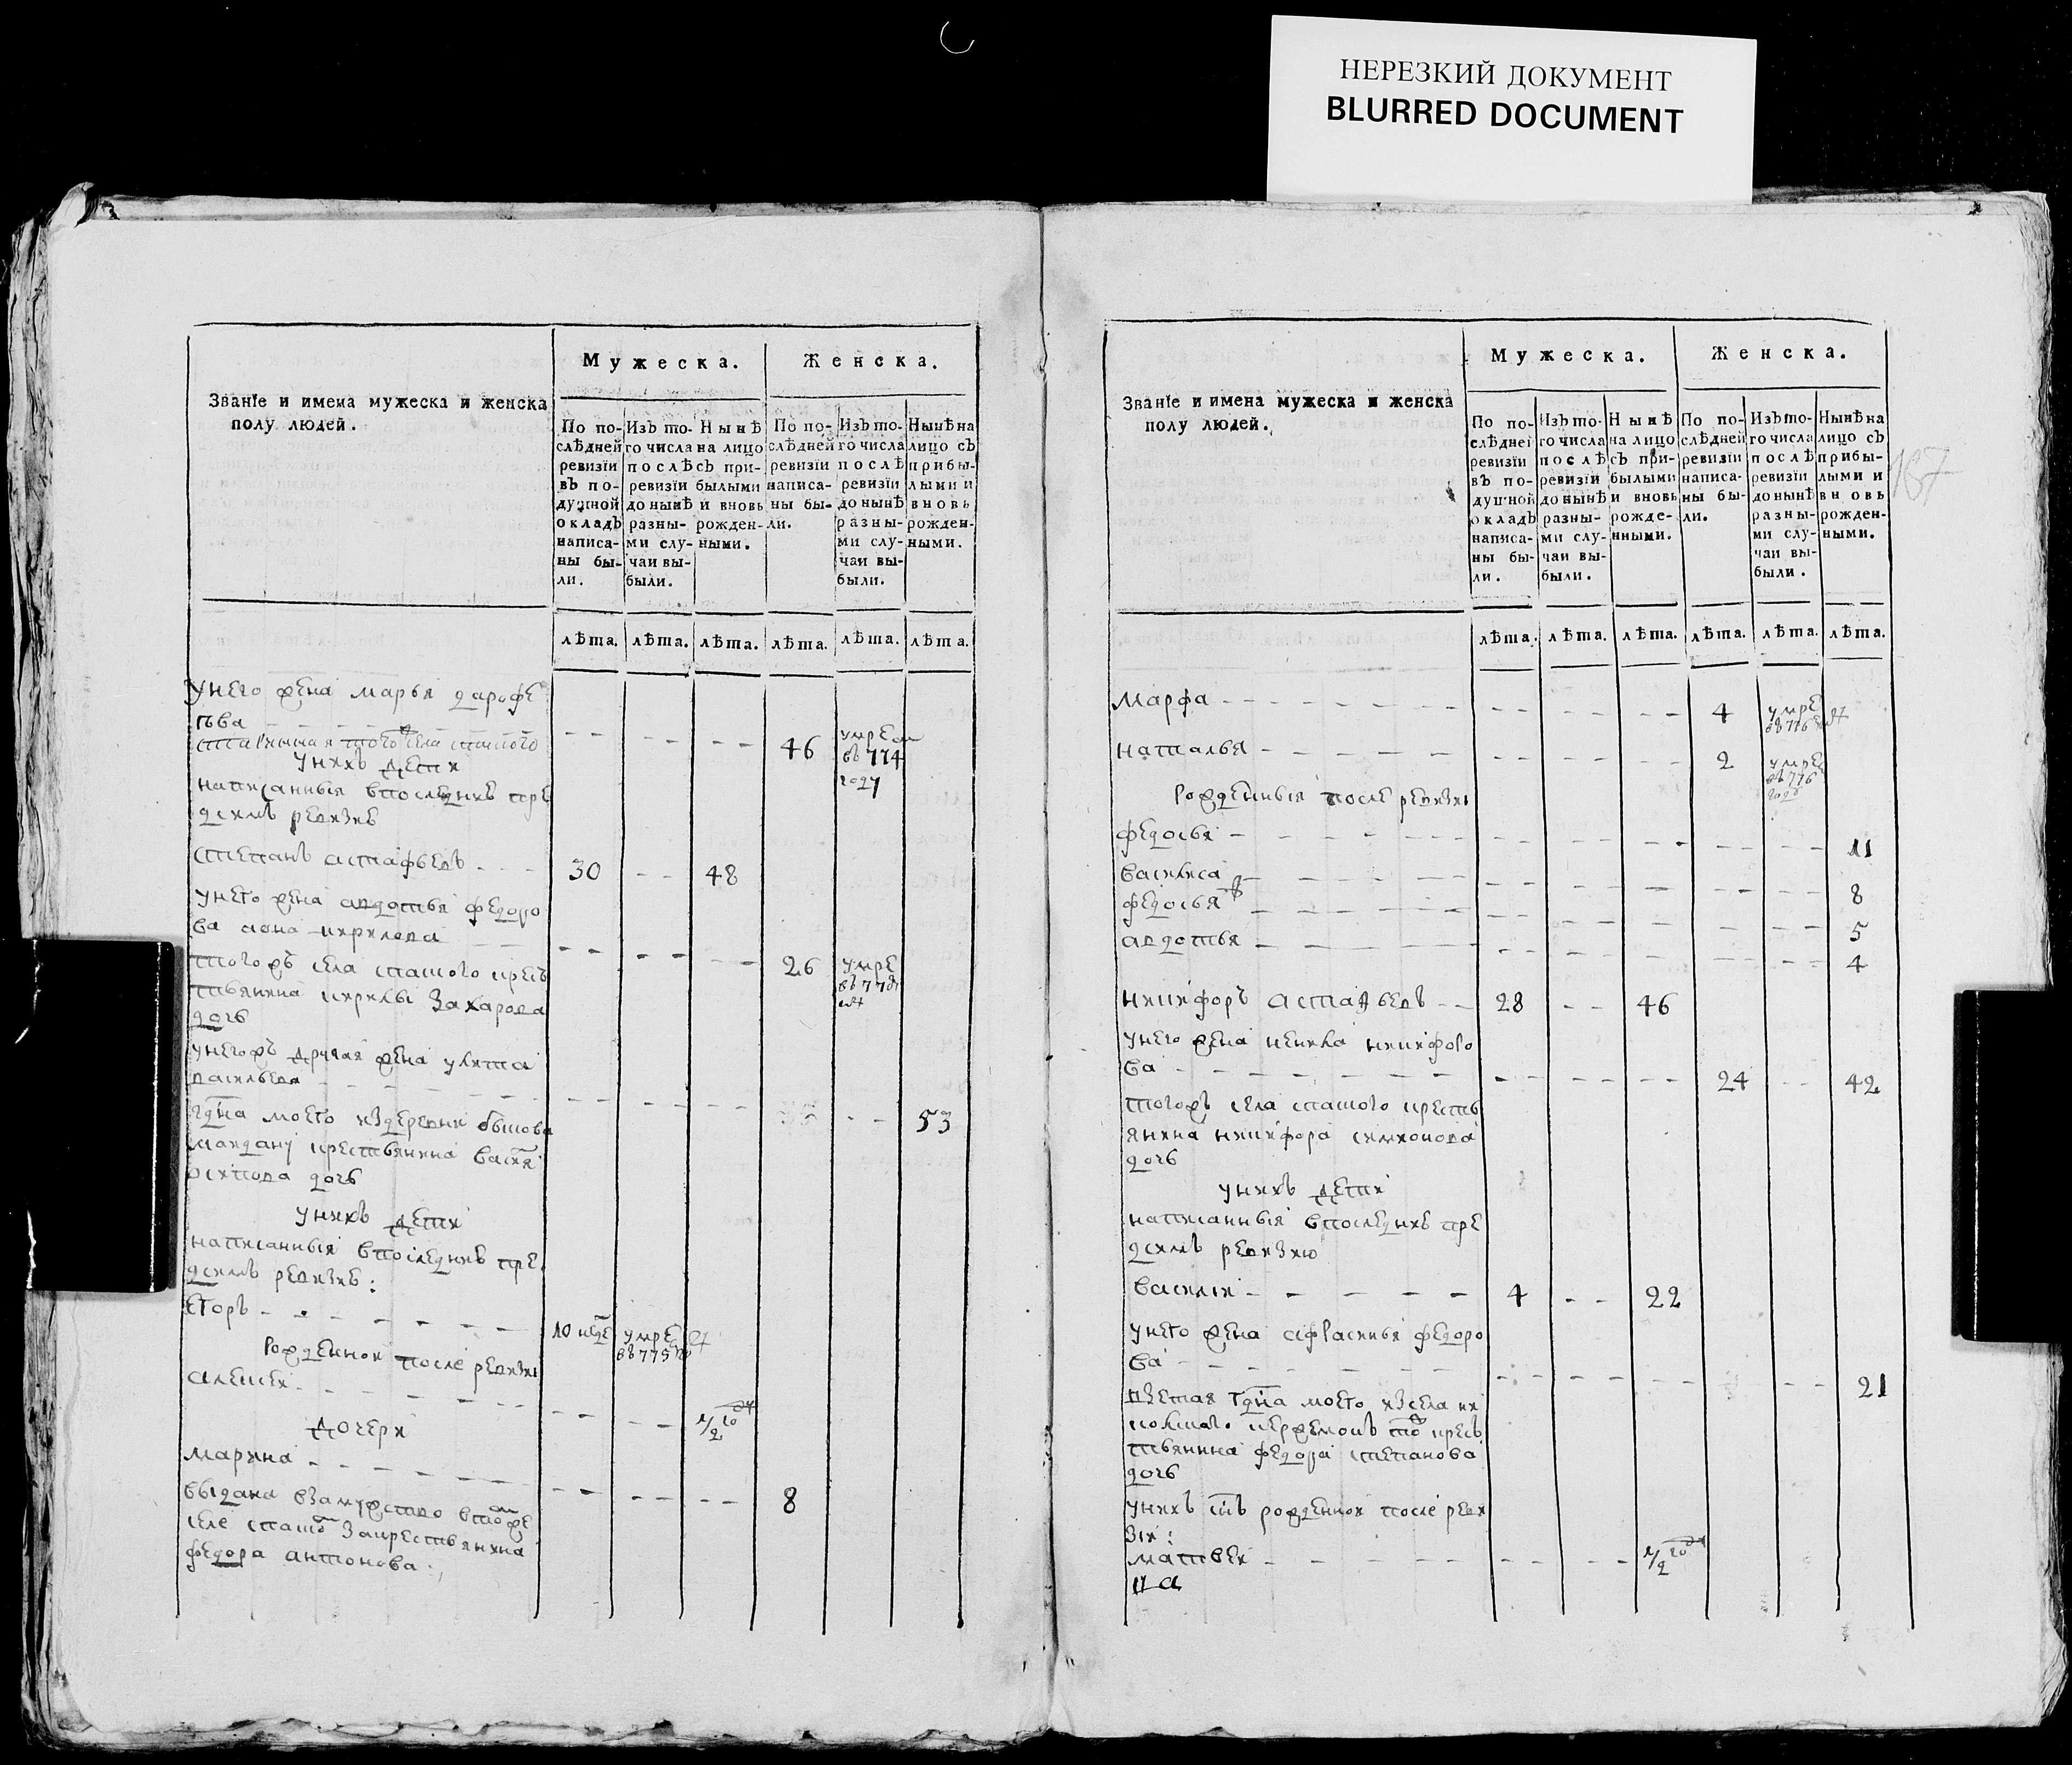 НЕРЕЗКИЙ ДОКУМЕНТ
BLURRED DOCUMENT
Званїе и имена мужеска и женска
полу людей.
Мужеска.
Женска.
По по-
слѣдней
ревизїи
въ по-
душной
окладъ
написа-
ны бы-
ли.
Изъ то-
го числа
послѣ
ревизїи
до нынѣ
разны-
ми слу-
чаи вы-
были.
Нынѣ
на лицо
съ при-
былыми
и вновь
рожден-
ными.
По по-
слѣдней
ревизїи
написа-
ны бы-
ли.
Изъ то-
го числа
послѣ
ревизїи
до нынѣ
разны-
ми слу-
чаи вы-
были.
Нынѣ на
лицо съ
прибы-
лыми и
вновь
рожден-
ными.
лѣта. лѣта. лѣта. лѣта. лѣта. лѣта.
унего жена марья дарофе
ева 46 умре въ 774 году
унихъ дети
написанныя впоследней пре
дсимъ ревизіе
степанъ астафьевъ 30 48
унего жена авдотья федоро
ва 26 умре
тогожъ села
кирилы захарова
дочь
унегожъ другая жена улита
васильева 53
гдна моего издеревни
крестьянина
осипова дочь
унихъ дети
написанныя впоследней пре
дсимъ ревизіе:
егоръ 10 неде умре въ 775
рожденной после ревизіи
алексеи 1/2 года
дочери
марина 8
выдана взамужство втомже
селе закрестьянина
федора антонова.
Званїе и имена мужеска и женска
полу людей.
Мужеска.
Женска.
По по-
слѣдней
ревизїи
въ по-
душной
окладъ
написа-
ны бы-
ли.
Изъ то-
го числа
послѣ
ревизїи
до нынѣ
разны-
ми слу-
чаи вы-
были.
Нынѣ
на лицо
съ при-
былыми
и вновь
рожде-
нными.
По по-
слѣдней
ревизїи
написа-
ны бы-
ли.
Изъ то-
го числа
послѣ
ревизїи
до нынѣ
разны-
ми слу-
чаи вы-
были.
Нынѣ на
лицо съ
прибы-
лыми и
вновь
рожден-
ными.
лѣта. лѣта. лѣта. лѣта. лѣта. лѣта.
марфа 4 умре въ 776
наталья 2 умре въ 776 году
рожденныя после ревизіи
федосья 11
василиса 8
федосья 5
авдотья 4
никифоръ астафьевъ 28 46
унего жена ненила никифоро
ва 24 42
тогожъ села кресть
янина никифора симионова
дочь
унихъ дети
написанныя впоследней пре
дсимъ ревизію
василіи 4 22
унего жена афрасинья федоро
ва 21
взетая гдна моего изсела ни
кольского
федора степанова
дочь
унихъ сынъ рожденнои после реви
зіи:
матвеи 1/2 года
на